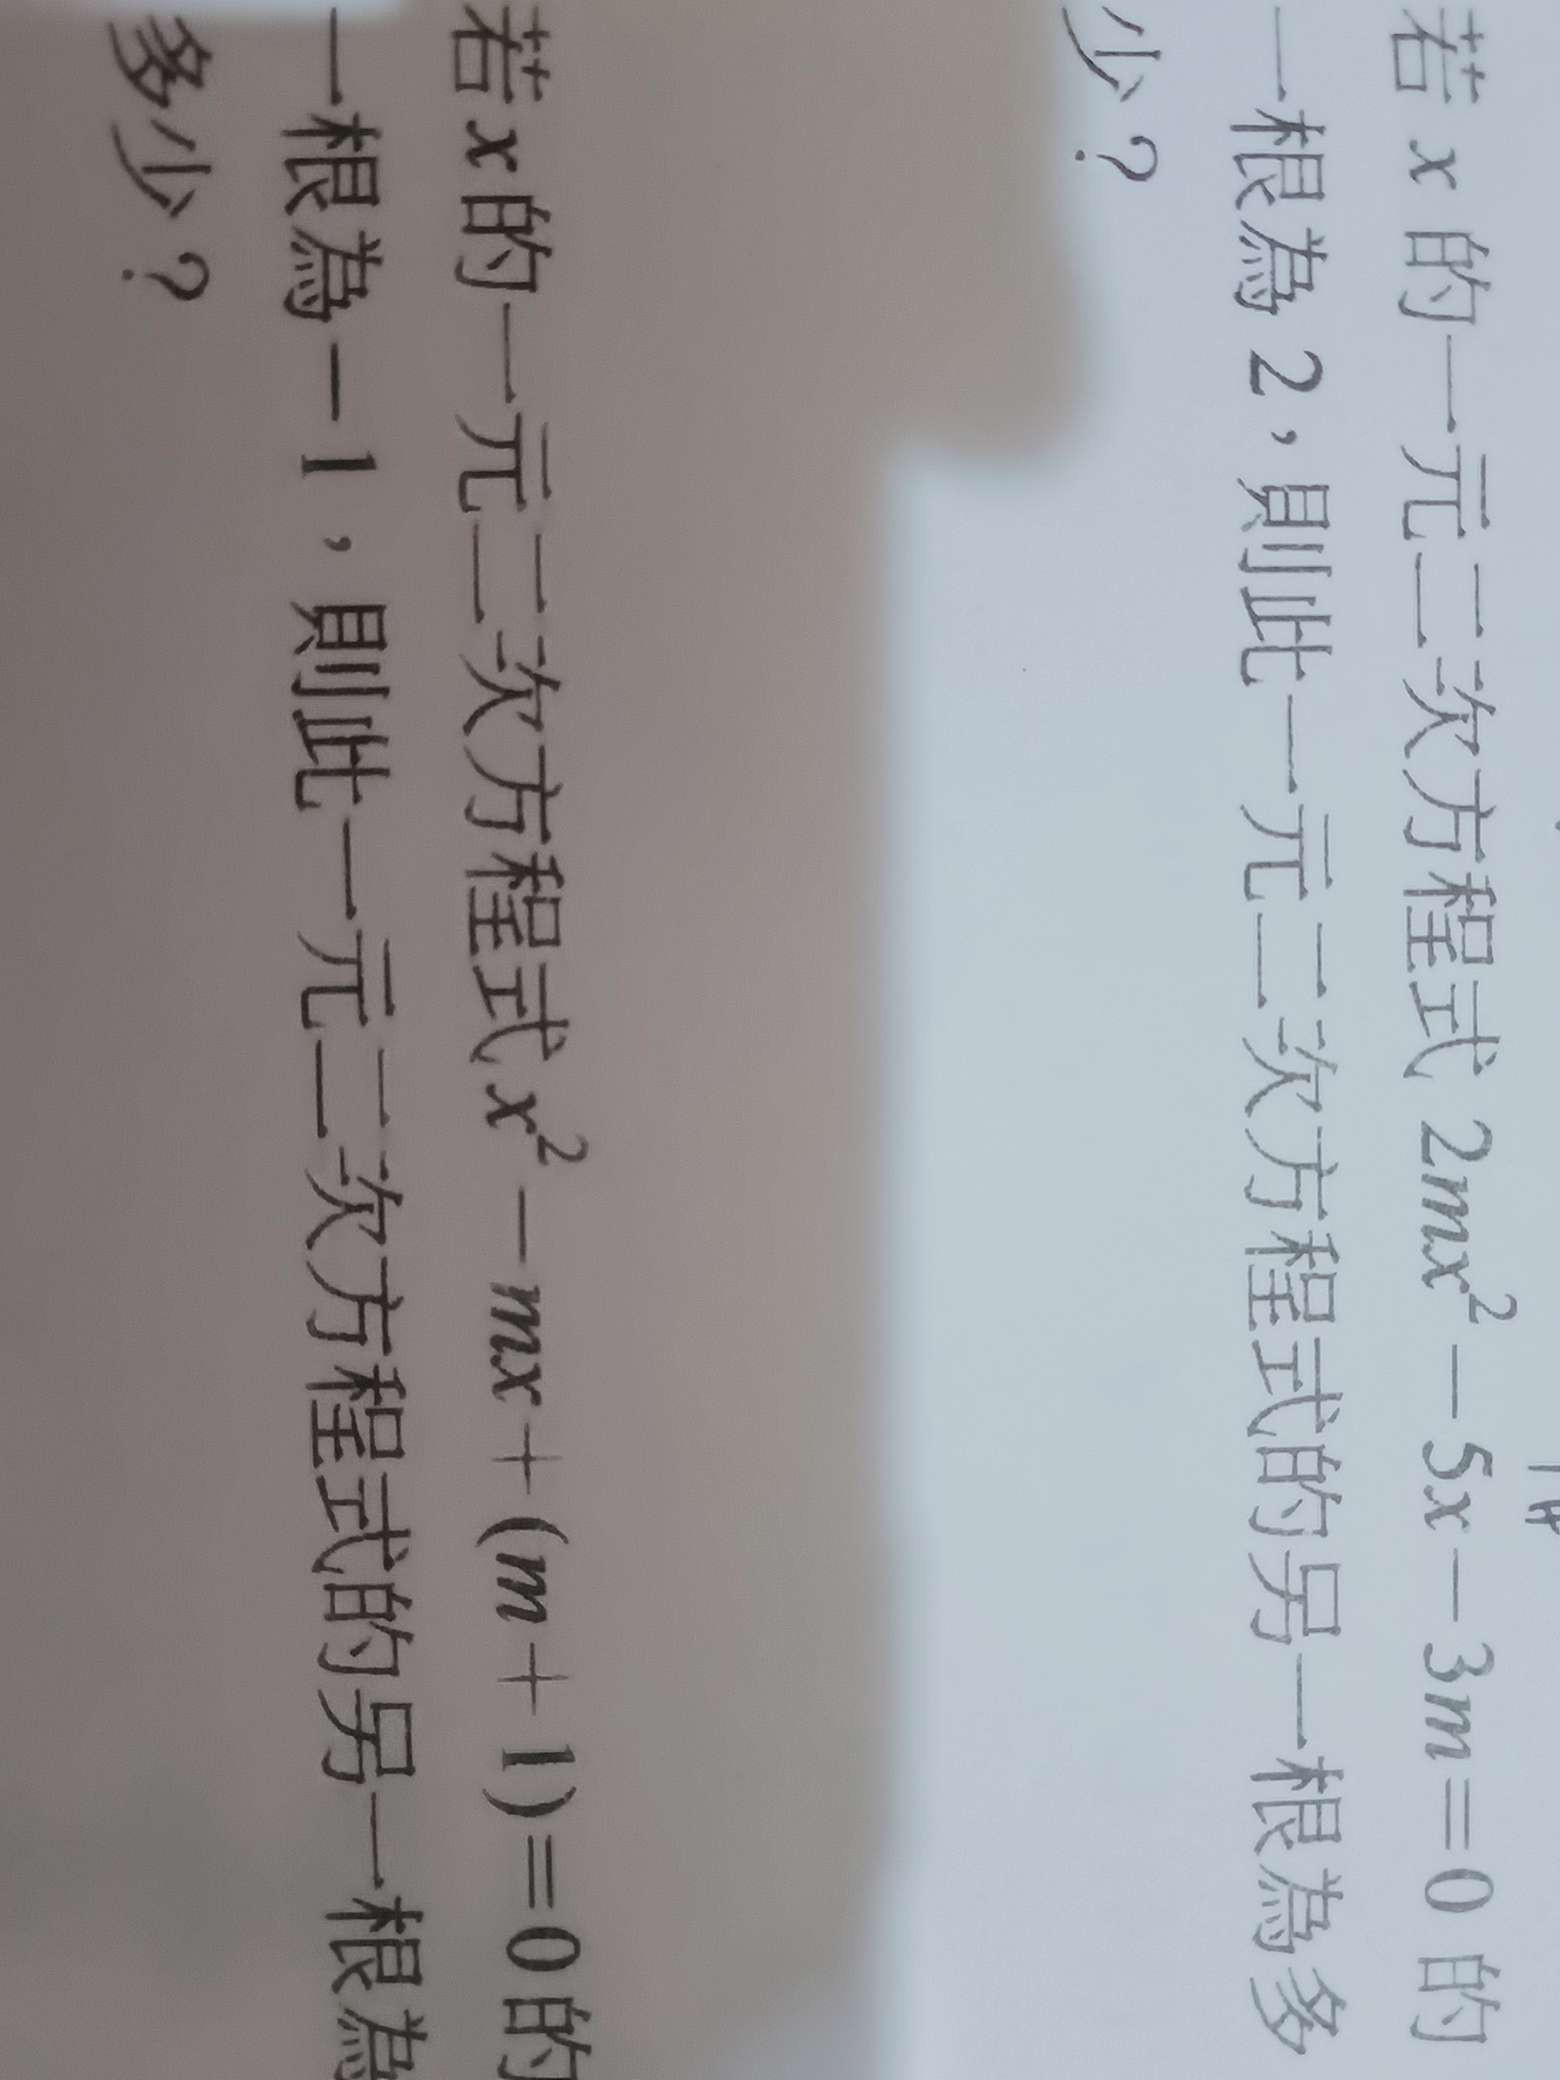 若 x 的一元二次方程式 2mx² − 5x − 3m = 0 的
一根為 2，則此一元二次方程式的另一根為多
少？
若 x 的一元二次方程式 x² − mx + (m + 1) = 0 的
一根為 − 1，則此一元二次方程式的另一根為
多少？